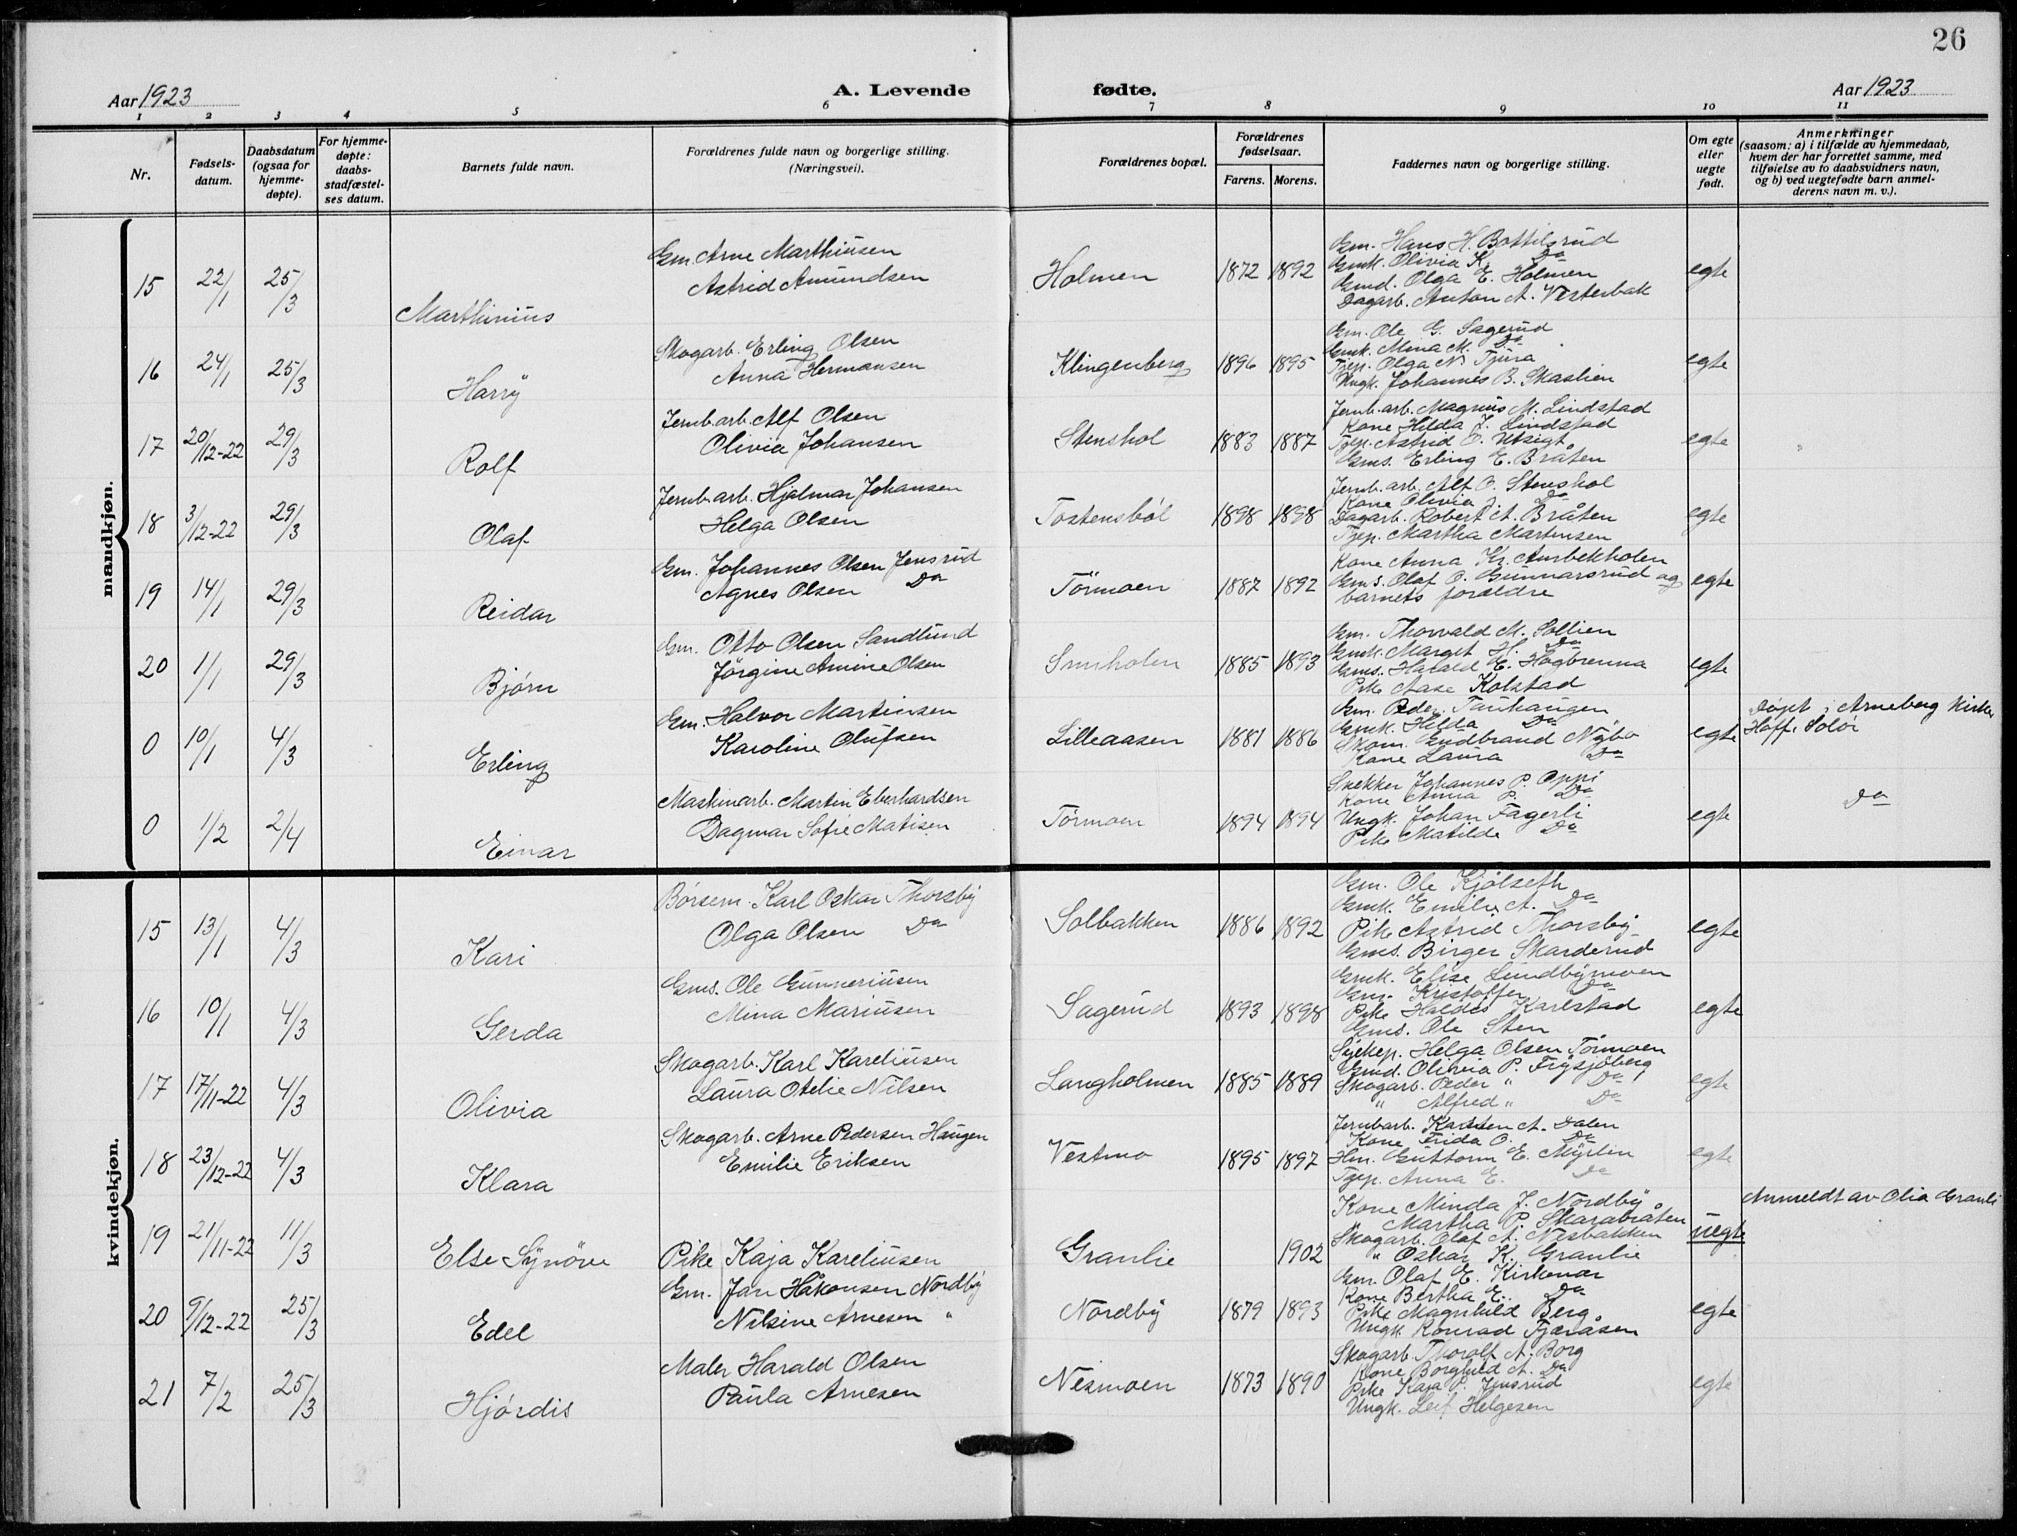 26
Aar 1923
A. Levende
fødte.
Aar 1923
1 2 3 4 5 6 7 8 9 10 11
Nr.
Fødsels-
datum.
Daabsdatum
(ogsaa for
hjemme-
døpte).
For hjemme-
døpte:
daabs-
stadfæstel-
ses datum.
Barnets fulde navn.
Forældrenes fulde navn og borgerlige stilling.
(Næringsvei).
Forældrenes bopæl.
Forældrenes
fødselsaar.
Farens. Morens.
Faddernes navn og borgerlige stilling.
Om egte
eller
uegte
født.
Anmerkninger
(saasom: a) i tilfælde av hjemmedaab,
hvem der har forrettet samme, med
tilføielse av to daabsvidners navn,
og b) ved uegtefødte barn anmel-
derens navn m. v.).
mandkjøn.
15 22/1 25/3 Marthinius
Gm. Arne Marthiusen
Astrid Amundsen
Holmen 1872 1892
Gm. Hans H. Bottilsrud
Gmk. Olivia K. Do
Gmd. Olga E. Holmen
Dagarb. Anton A. Vesterbak
egte
16 24/1 25/3 Harry
Skogarb. Erling Olsen
Anna Hermansen
Klingenberg 1896 1895
Gm. Ole G. Sagerud
Gmk. Mina M. Do
Tjep. Olga N. Tjura
Ungk. Johannes B. Skaslien
egte
17 20/12-22 29/3 Rolf
Jernb. arb. Alf Olsen
Olivia Johansen
Stenshol 1883 1887
Jernb. arb. Magnus M. Lindstad
Kone Hilda J. Lindstad
Tjep. Astrid O. Utsigt
Gms. Erling E. Bråten
egte
18 3/12-22 29/3 Olaf
Jernb. arb. Hjalmar Johansen
Helga Olsen
Tostensböl 1898 1898
Jernb. arb. Alf O. Stenshol
Kone Olivia J. Do
Dagarb. Robert A. Bråten
Tjep. Martha Martinsen
egte
19 14/1 29/3 Reidar
Gm. Johannes Olsen Jensrud
Agnes Olsen Do
Törmoen 1887 1892
Kone Anna Kr. Aurbekholen
Gms. Olaf O. Gunnarsrud og
barnets forældre
egte
20 1/1 29/3 Bjørn
Gm. Otto Olsen Sandlund
Jörgine Amine Olsen
1885 1893
Gm. Thorvald M. Sollien
Gmk. Margit H. Do
Gms. Harald E. Høgbrenna
Pike Aase Kolstad
egte
0 10/1 4/3 Erling
Gm. Halvor Martinsen
Karoline Olufsen
Lilleaasen 1881 1886
Gm. Peder Tauhaugen
Gmk. Hilda Do
Skom. Gudbrand Nybo
Kone Laura Do
egte
Døpt i Arneberg kirke
Hoff. Solør
0 1/2 2/4 Einar
Maskinarb. Martin Eberhardsen
Dagmar Sofie Matisen
Törmoen 1894 1894
Snekker Johannes P. Oppi
Kone Anna P. Do
Ungk. Johan Fagerli
Pike Matilde Do
egte
Do
kvindekjøn.
15 13/1 4/3 Kari
Børsem. Karl Oskar Thorsby
Olga Olsen Do
Solbakken 1886 1892
Gm. Ole Kjölseth
Gmk. Emilie A. Do
Pike Astrid Thorsby
Gms. Birger Skarderud
egte
16 10/1 4/3 Gerda
Gms. Ole Gunneriusen
Mina Mariusen
Sagerud 1893 1898
Gmk. Elise Lundbymoen
Gm. Kristoffer Do
Pike Haldis Karlstad
Gms. Ole Sten
egte
17 17/11-22 4/3 Olivia
Skogarb. Karl Kareliusen
Laura Otelie Nilsen
Langholmen 1885 1889
Syekep. Helga Olsen Törmoen
Gmd. Olivia P. Frysjøberg
Skogarb. Peder " Do
" Alfred " Do
egte
18 23/12-22 4/3 Klara
Skogarb. Arne Pedersen Haugen
Emilie Eriksen
Vestmo 1895 1897
Jernbarb. Karsten A. Dalen
Kone Frida O. Do
Hm. Guttorm E. Myrlien
Tjep. Anna E. Do
egte
19 21/11-22 11/3 Else Synöve
Pike Kaja Kareliusen
Granlie 1902
Kone Minda J. Nordby
" Martha P. Skarabråten
Skogarb. Olaf A. Nesbakken
" Oskar K. Granlie
uegte
Anmeldt av Olia Granli
20 9/12-22 25/3 Edel
Gm. Jan Håkonsen Nordby
Nilsine Arnesen "
Nordby 1879 1893
Gm. Olaf E. Kirkenær
Kone Bertha E. Do
Pike Magnhild Berg
Ungk. Konrad Tjæråsen
egte
21 7/2 25/3 Hjördis
Maler Harald Olsen
Paula Arnesen
Nesmoen 1873 1890
Skogarb. Thoralf A. Borg
Kone Borghild A. Do
Pike Kaja P. Jensrud
Ungk. Leif Helgesen
egte